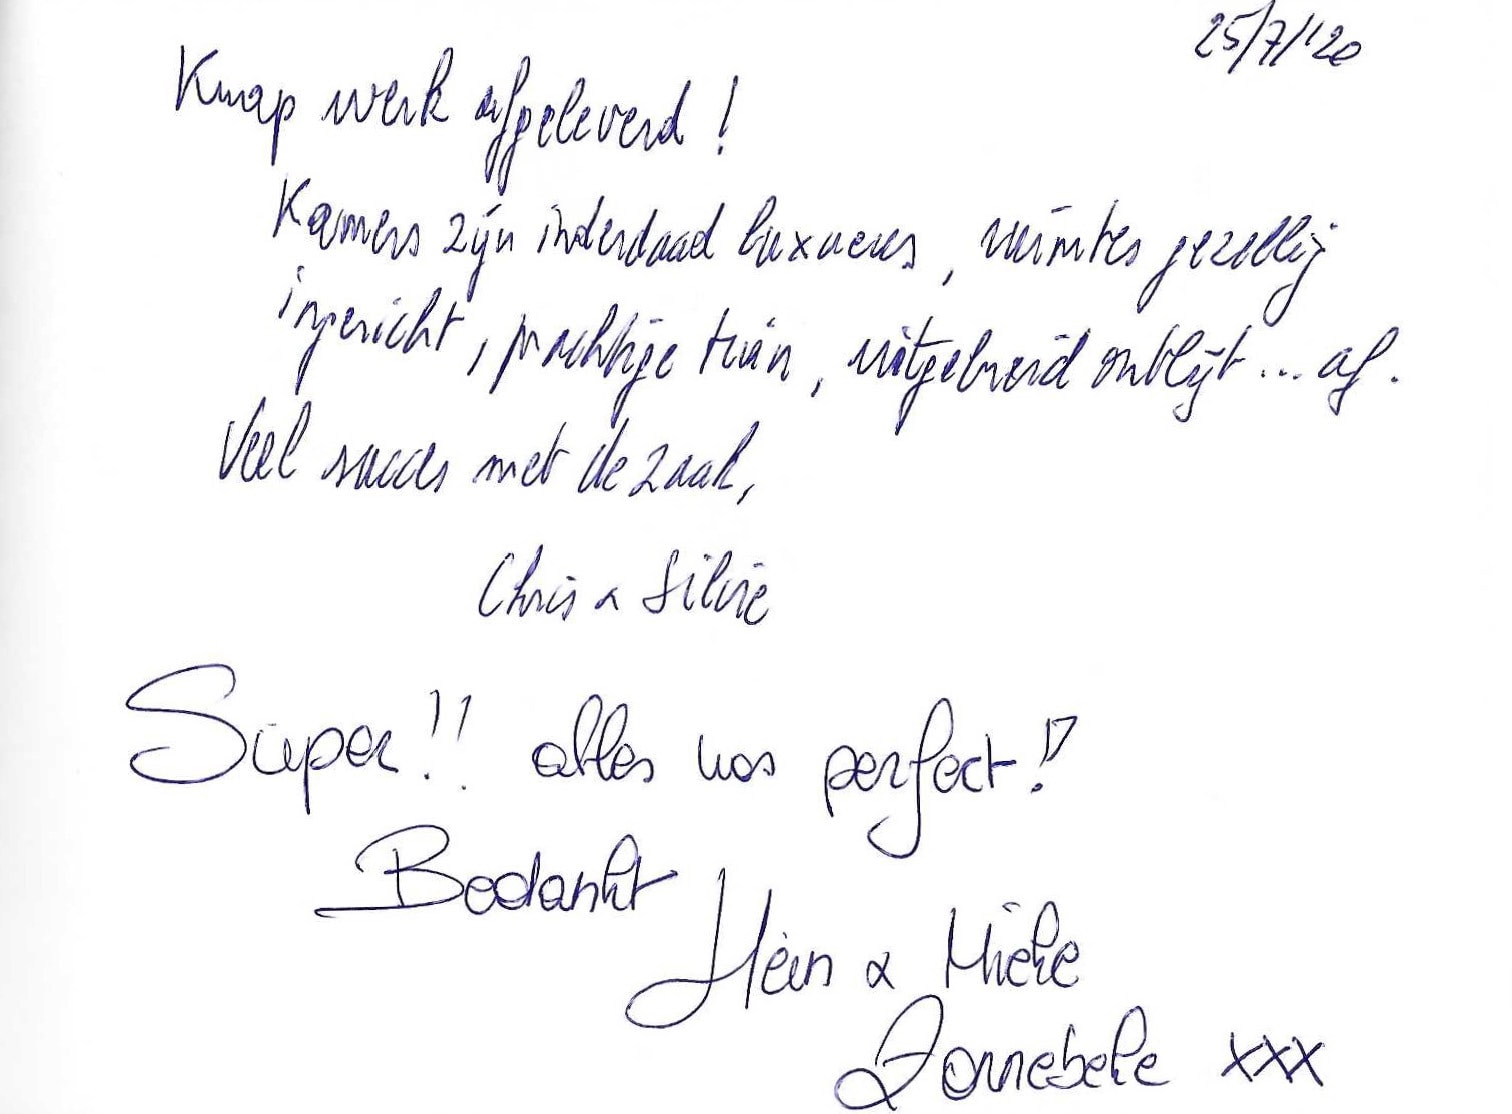 25/7/'20
Knap werk afgeleverd !
Kamers zijn inderdaad luxueus, ruimtes gezellig
ingericht, prachtige tuin, uitgebreid ontbijt ... af.
Veel succes met de zaak,
Chris & Silvie
Super!! alles was perfect!!
Bedankt
Hein & Mieke
Zonnebeke xxx